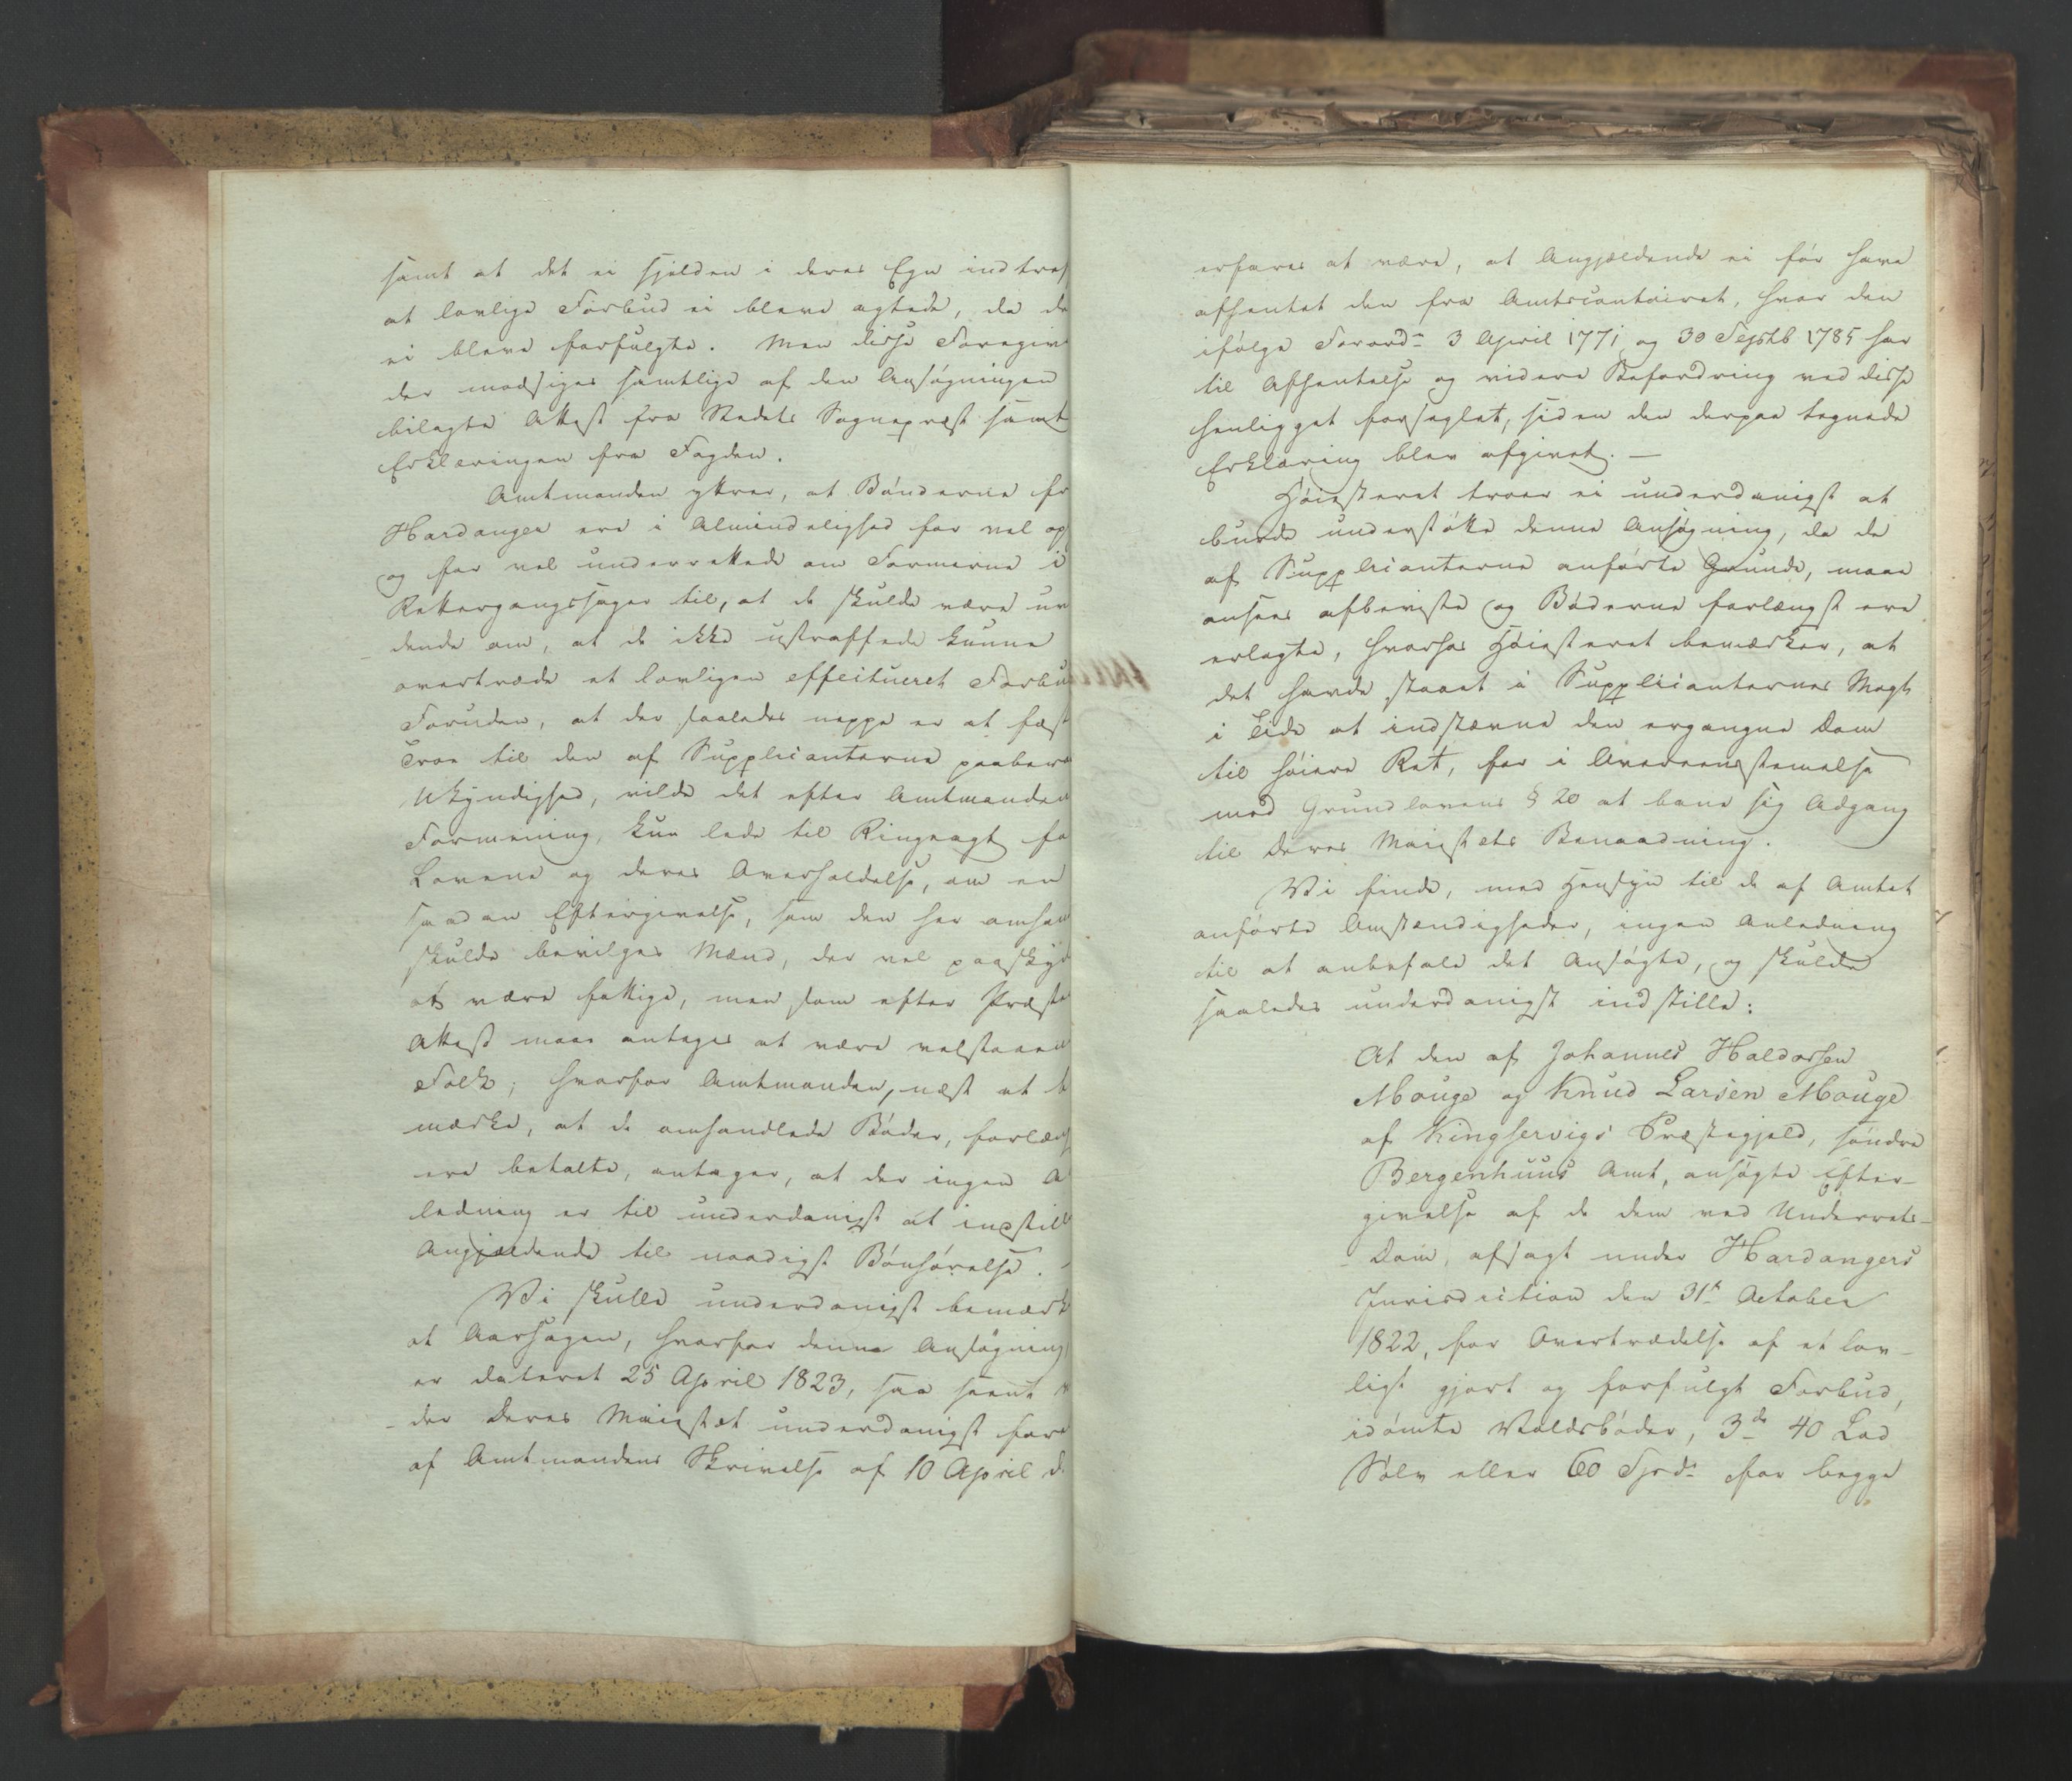 samt at det ei sjelden i deres Egn indtref
at lovlige Forbud ei bleve agtede, da de
ei bleve forfulgte. Men disse Foregiv
der modsiges samtlige af den Ansøgningen
bilagte Attest fra Stedets Sognepræst samt
Erklæringen fra Fogden.
Amtmanden yttrer, at Bønderne fr
Hardanger ere i Almindelighed for vel op
og for vel underrettede om Formerne i
Rettergangssager til, at de skulde være uv
dende om, at de ikke ustraffede kunne
overtræde et lovligen effectueret Forbu
Foruden, at der saaledes neppe er at fæst
Troe til den af Supplicanterne paabero
Ukyndighed, vilde det efter Amtmanden
Formening, kun lede til Ringeagt fo
Lovene og deres Overholdelse, om en
saadan Eftergivelse, som den her omhan
skulde bevilges Mænd, der vel paaskyd
at være fattige, men som efter Præste
Attest maae antages at være velstaaen
Folk; hvorfor Amtmanden, næst at b
mærke, at de omhandlede Bøder, forlæng
ere betalte, antager, at der ingen A
ledning er til underdanigst at indstill
Angjældende til naadigst Bønhørelse.
Vi skulle underdanigst bemærk
at Aarsagen, hvorfor denne Ansøgning
er dateret 25 April 1823, saa seent
der Deres Majestæt underdanigst fore
af Amtmandens Skrivelse af 10 April d.
erfares at være, at Angjældende ei før have
afhentet den fra Amtscontoiret, hvor den
ifølge Forordn 3 April 1771 og 30 Septb 1785 har
til Afhentelse og videre Befordring ved disse
henligget forseglet, siden den derpaa tegnede
Erklæring blev afgivet. —
Høiesteret troer ei underdanigst at
burde understøtte denne Ansøgning, da de
af Supplicanterne anførte Grunde, maae
ansees afbeviste og Bøderne forlængst ere
erlagte, hvorhos Høiesteret bemærker, at
det havde staaet i Supplicanternes Magt
i Tide at indstævne den ergangne Dom
til høiere Ret, for i Overeensstemmelse
med Grundlovens § 20 at bane sig Adgang
til Deres Majestæts Benaadning.
Vi finde, med Hensyn til de af Amtet
anførte Omstændigheder, ingen Anledning
til at anbefale det Ansøgte, og skulde
saaledes underdanigst indstille:
At den af Johannes Haldorsen
Mouge og Knud Larsen Mouge
af Kingservigs Præstegjeld, søndre
Bergenhuus Amt, ansøgte Efter-
givelse af de dem ved Underrets-
Dom, afsagt under Hardangers
Jurisdiction den 31te October
1822, for Overtrædelse af et lov-
ligt gjort og forfulgt Forbud,
idømte Voldsbøder, 3de 40 Lod
Sølv eller 60 Spd. for begge